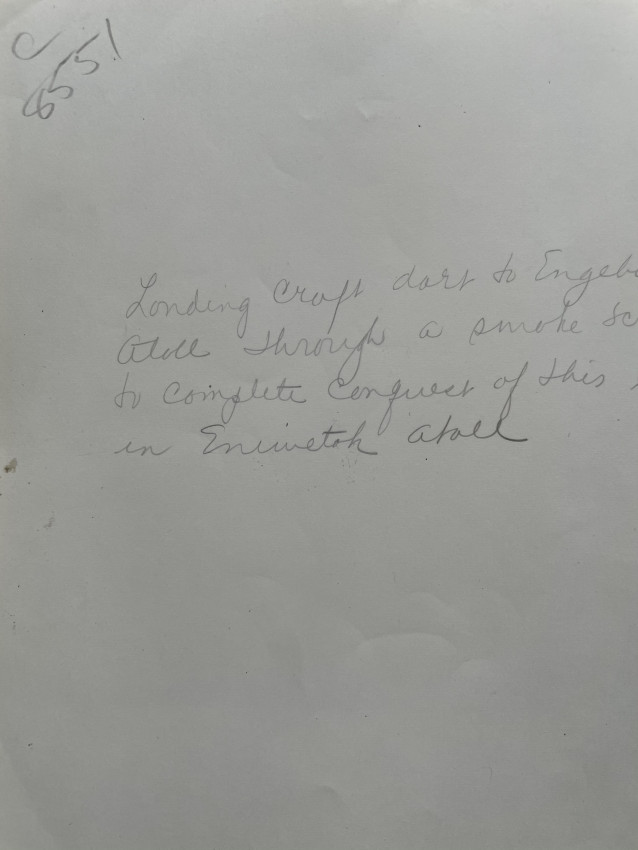 C
6551
Landing craft dart to Engeb
Atoll through a smoke sc
to complete conquest of this
in Eniwetok atoll